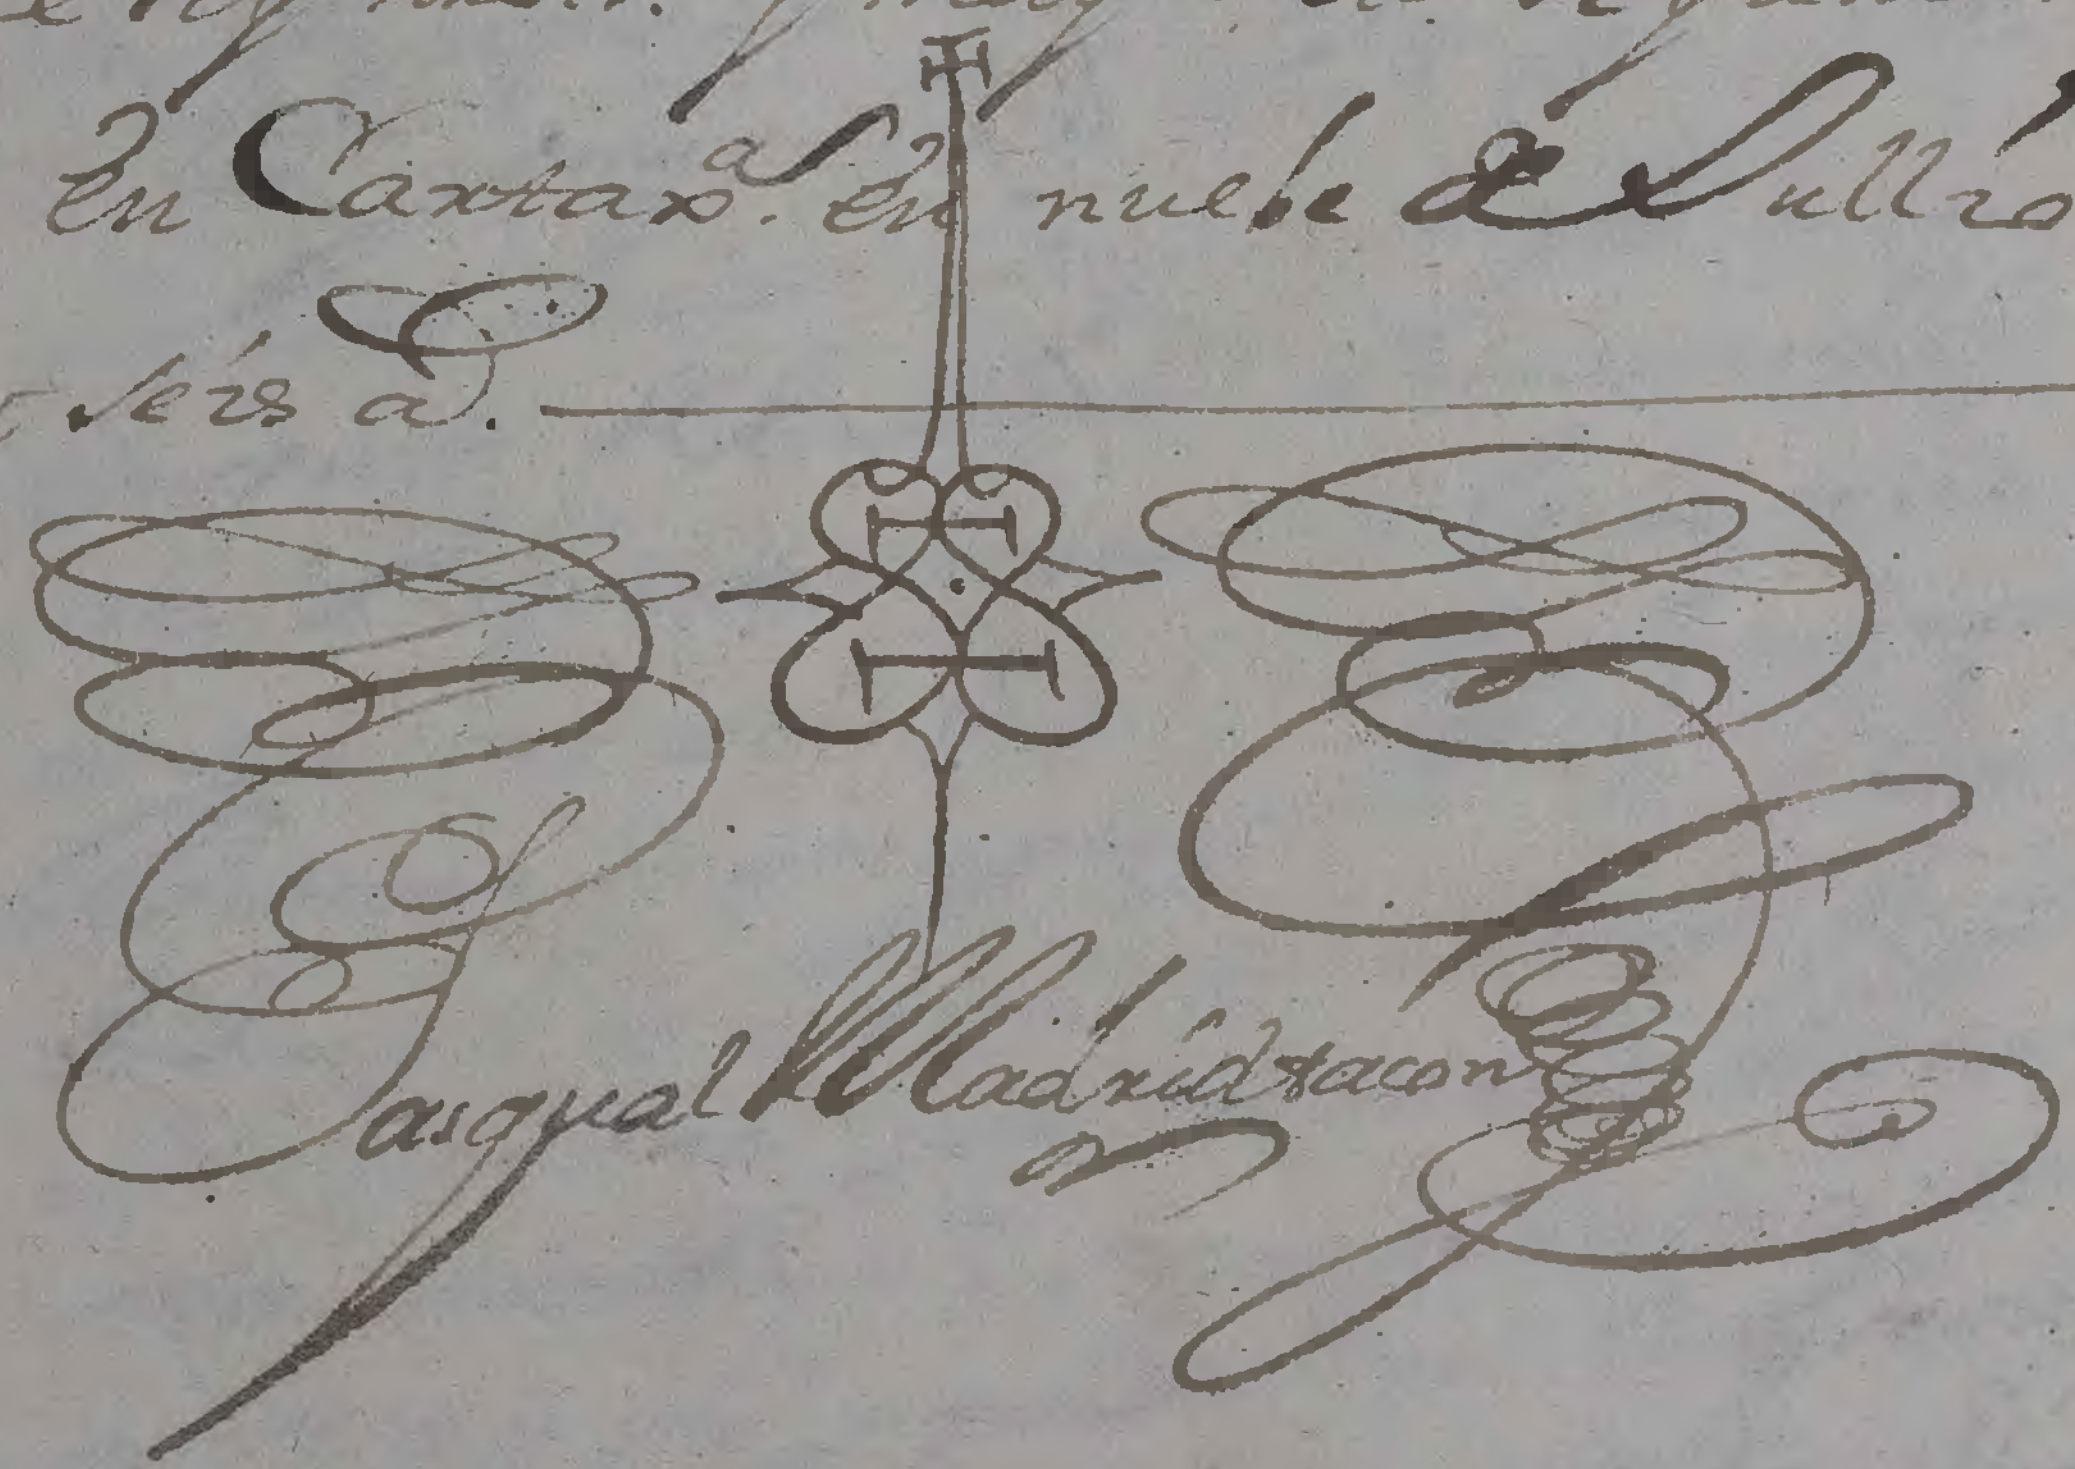 En Cartax.ª En nuebe de Jullio
seis a.
Pasqual Madrid tacon